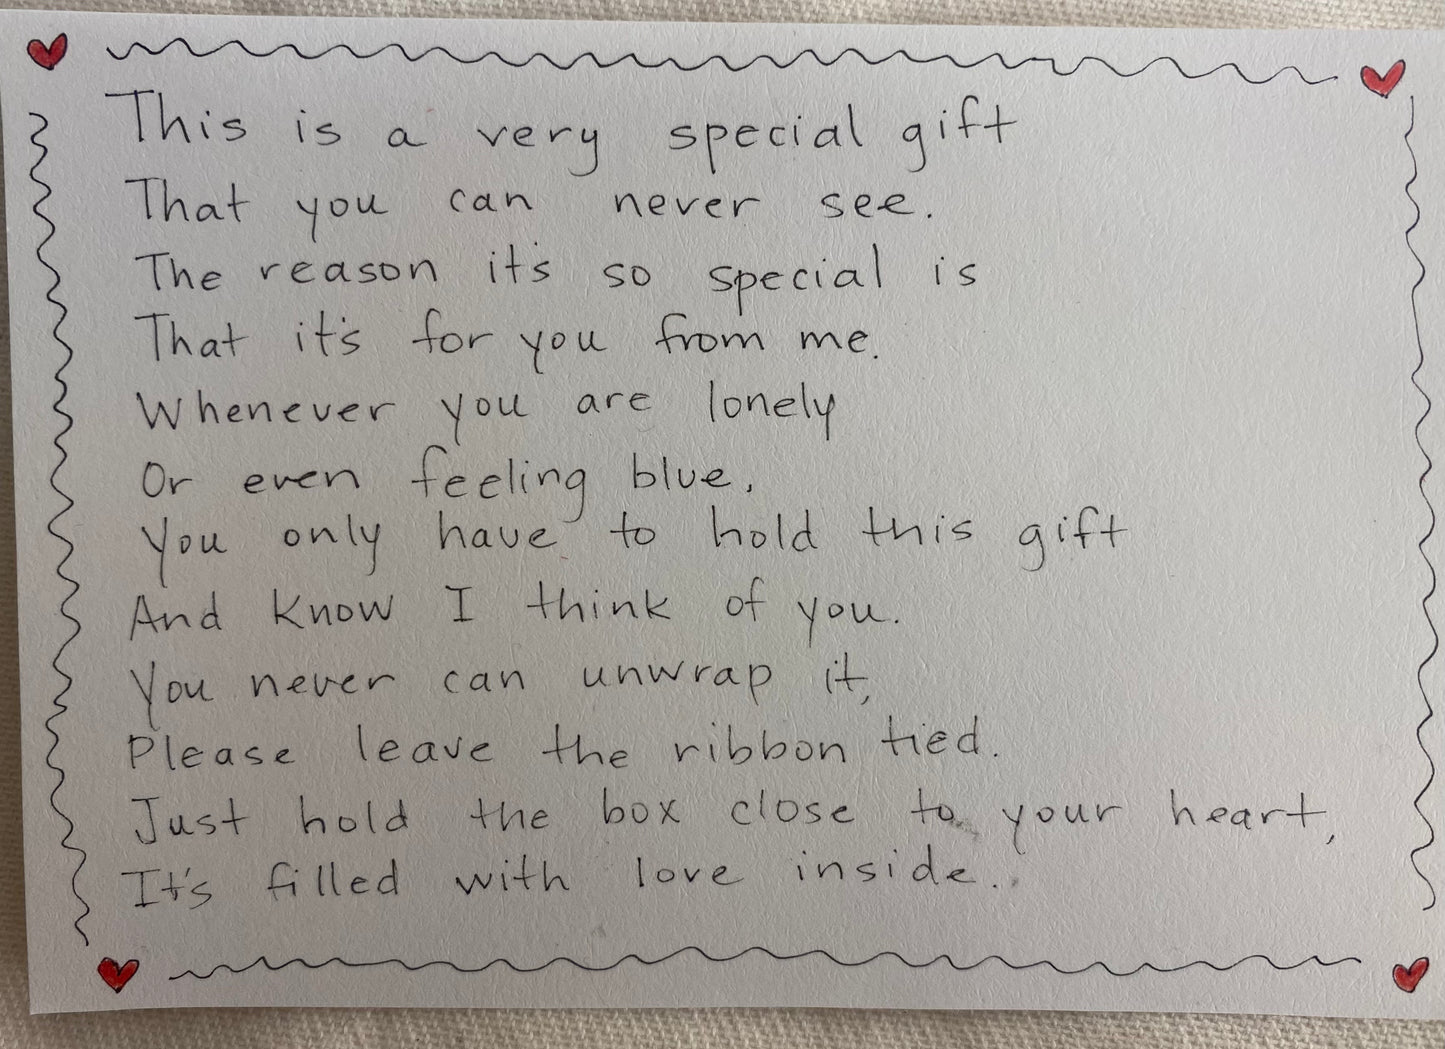 This is a very special gift
That you can never see.
The reason it's so special is
That it's for you from me.
Whenever you are lonely
Or even feeling blue,
You only have to hold this gift
And know I think of you.
You never can unwrap it,
Please leave the ribbon tied.
Just hold the box close to your heart,
It's filled with love inside.